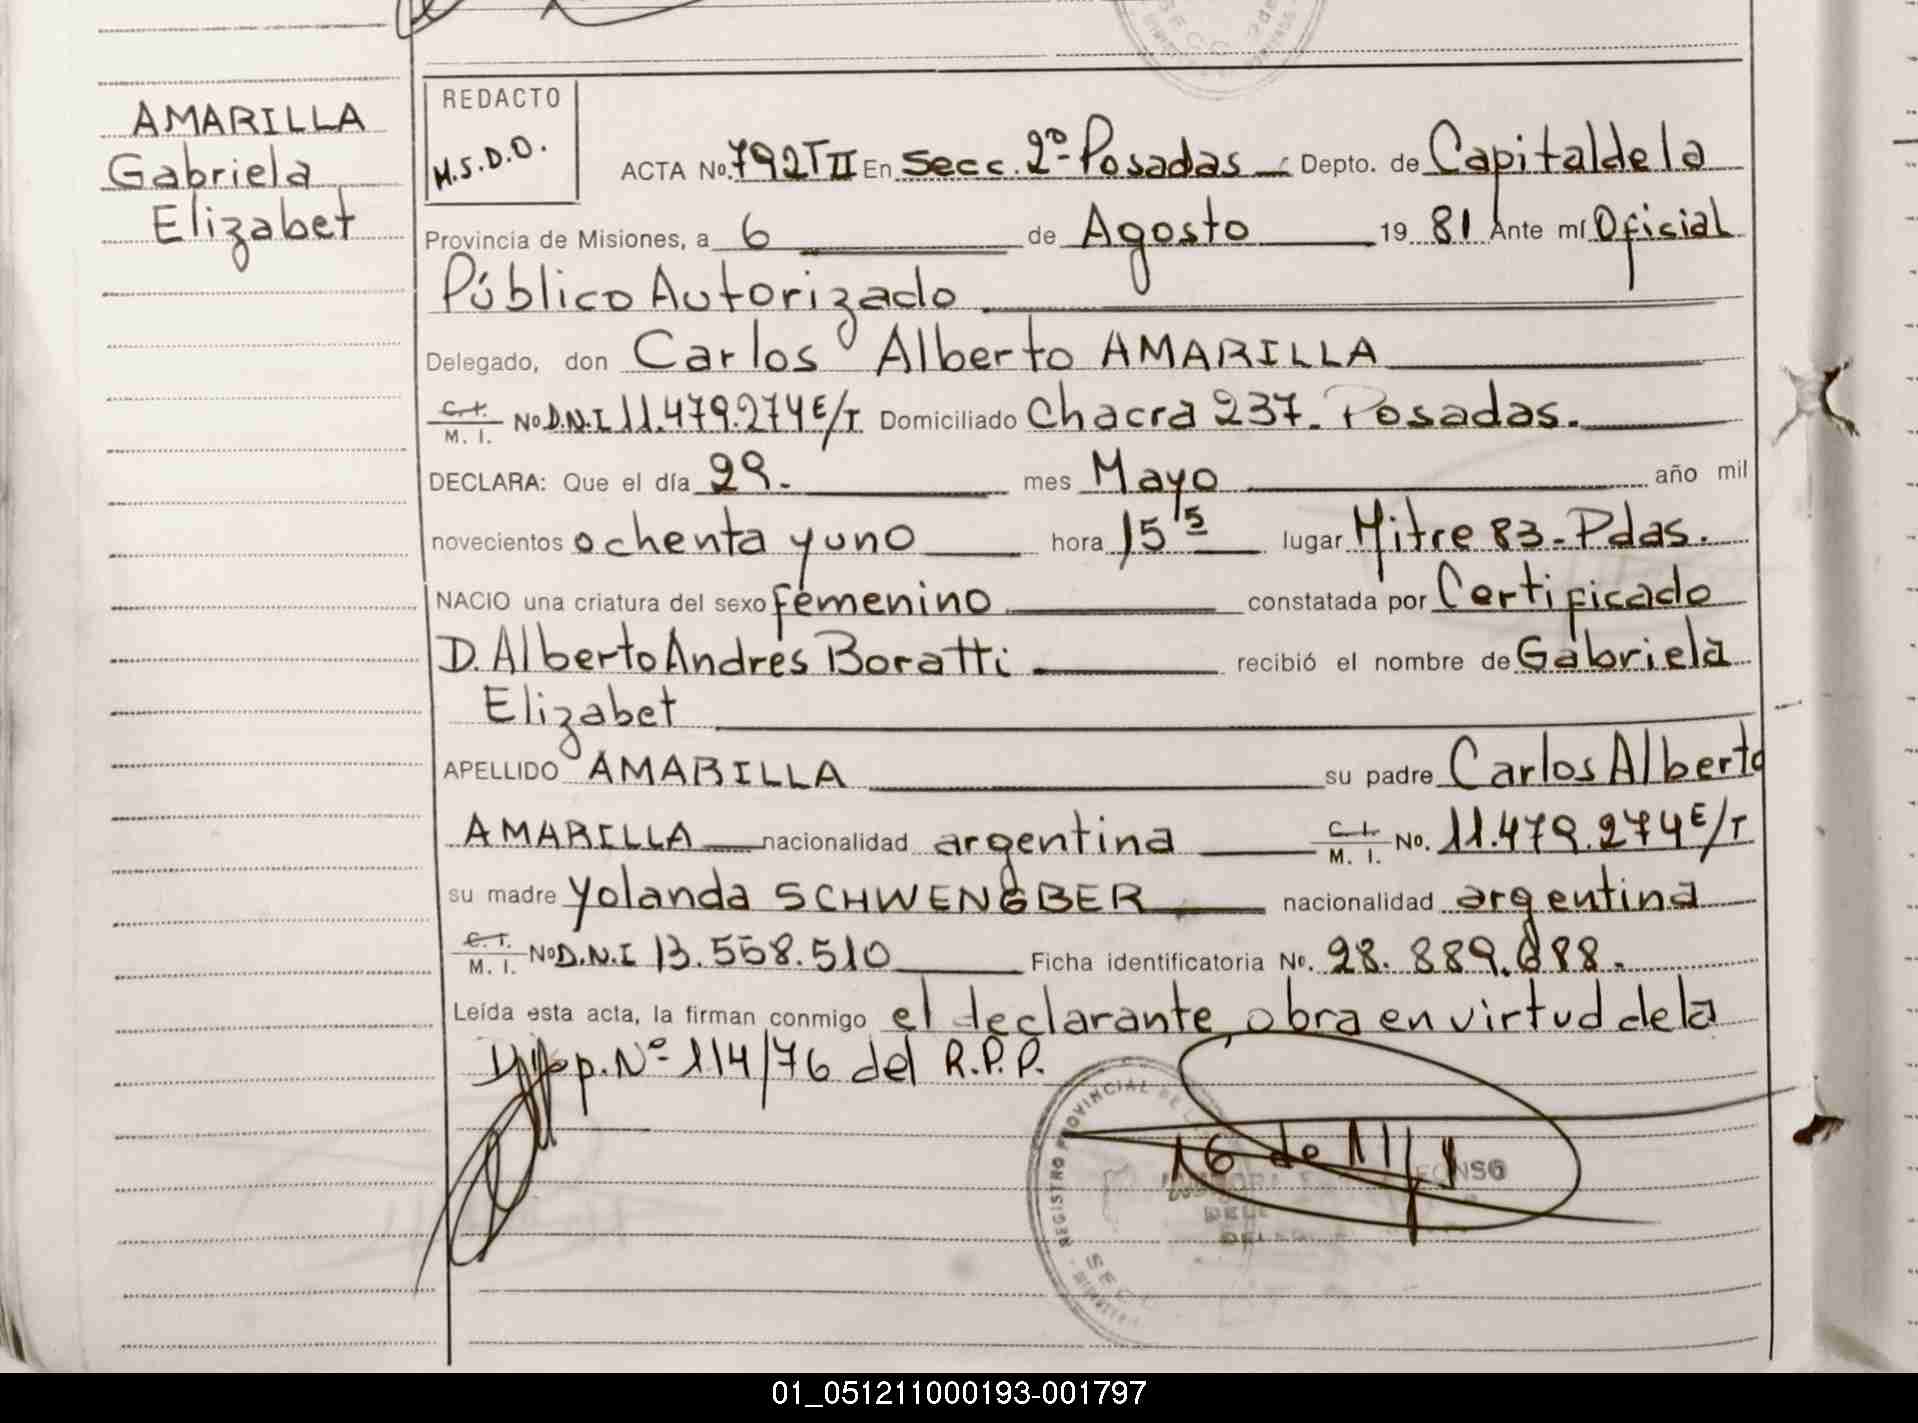 AMARILLA
Gabriela
Elizabet
REDACTO
M.S.D.O.
ACTA No. 792 T II En Secc. 2º- Posadas Depto. de Capital de la
Provincia de Misiones, a 6 de Agosto 19 81 Ante mí Oficial
Público Autorizado
Delegado, don Carlos Alberto AMARILLA
C.I. M. I. No D.N.I 11.479.274 E/T Domiciliado Chacra 237. Posadas.
DECLARA: Que el día 29. mes Mayo año mil
novecientos ochenta y uno hora 15 15 lugar Mitre 83- Pdas.
NACIO una criatura del sexo femenino constatada por Certificado
D. Alberto Andres Boratti recibió el nombre de Gabriela
Elizabet
APELLIDO AMARILLA su padre Carlos Alberto
AMARILLA nacionalidad argentina C.I. M. I. No. 11.479.274 E/T
su madre Yolanda SCHWENGBER nacionalidad argentina
C.I. M. I. No D.N.I 13.558.510 Ficha identificatoria No. 28.889.688.
Leída esta acta, la firman conmigo el declarante, obra en virtud de la
Disp. Nº 114/76 del R.P.P.
REGISTRO PROVINCIAL DE L
SEC
01_051211000193-001797